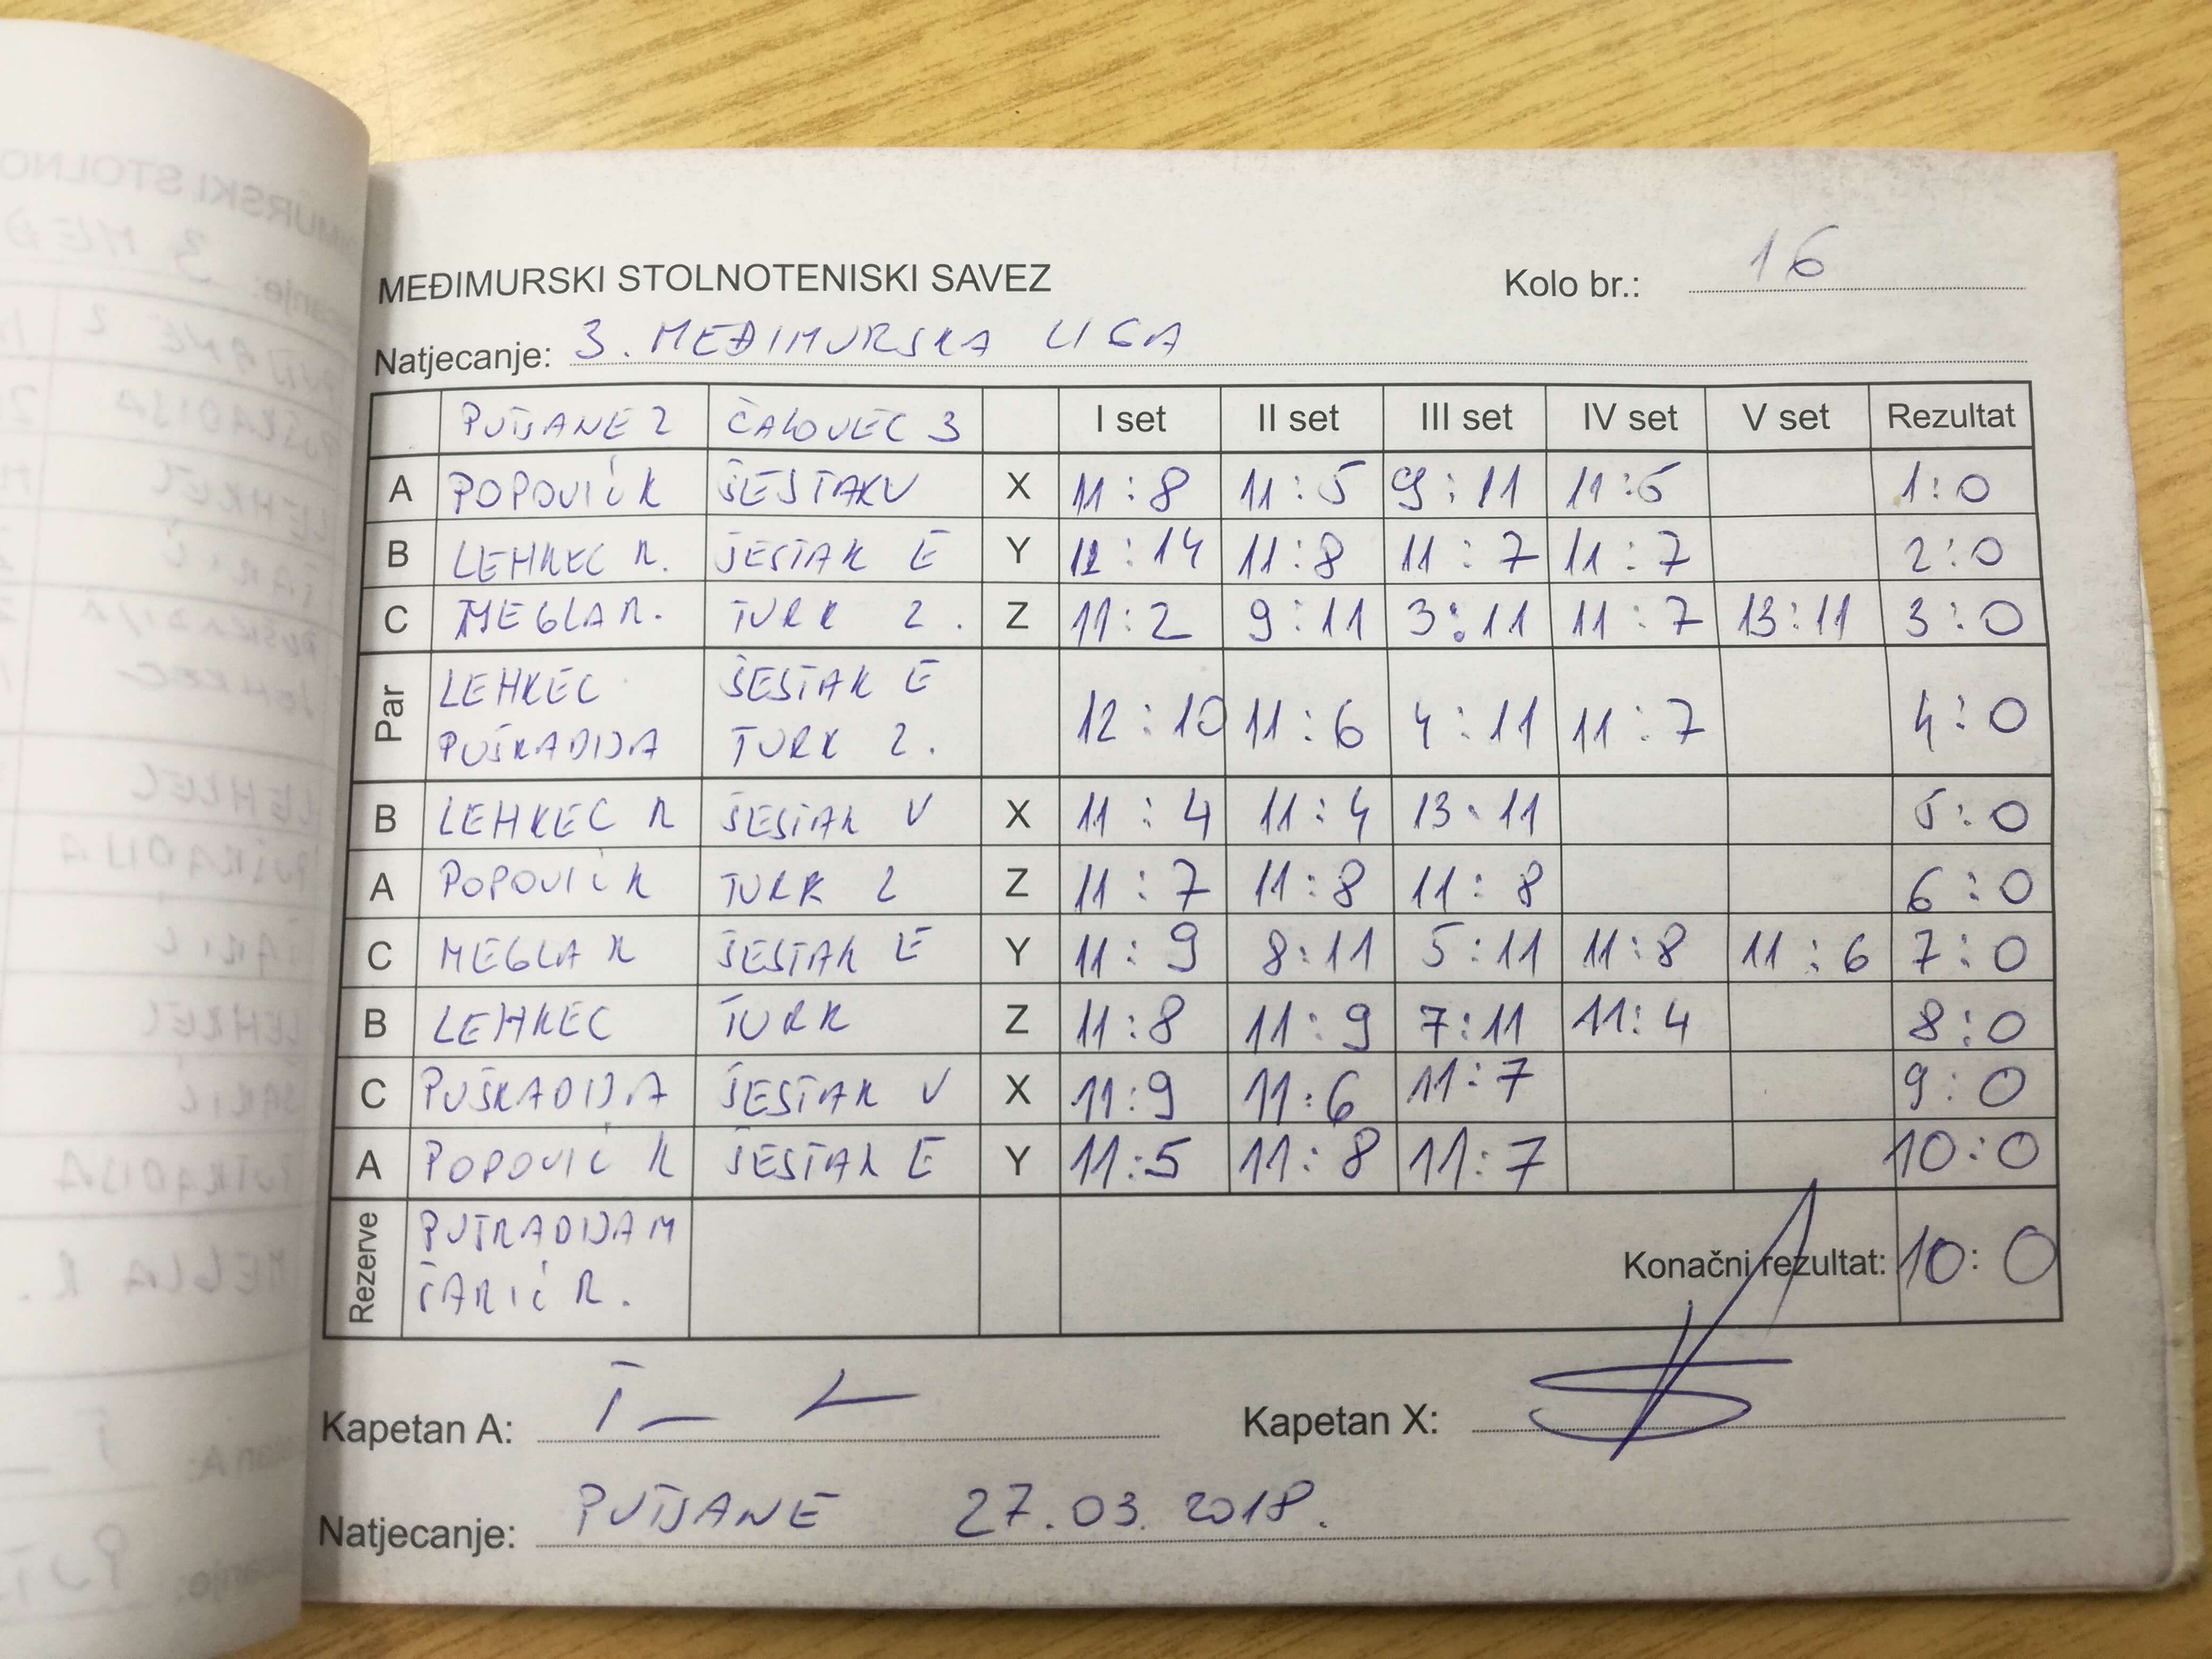 MEĐIMURSKI STOLNOTENISKI SAVEZ Kolo br.: 16
Natjecanje: 3. MEĐIMURSKA LIGA
PUŠĆANE 2 ČALOVEC 3 I set II set III set IV set V set Rezultat
A POPOVIĆ K ŠESTAK V X 11:8 11:5 9:11 11:5 1:0
B LEHKEC R. ŠESTAK E Y 12:14 11:8 11:7 11:7 2:0
C MEGLA R. TURK Z. Z 11:2 9:11 3:11 11:7 13:11 3:0
Par LEHKEC ŠESTAK E 12:10 11:6 4:11 11:7 4:0
PUŠKADIJA TURK Z.
B LEHKEC R ŠESTAK V X 11:4 11:4 13:11 5:0
A POPOVIĆ K TURK Z Z 11:7 11:8 11:8 6:0
C MEGLA R ŠESTAK E Y 11:9 8:11 5:11 11:8 11:6 7:0
B LEHKEC TURK Z 11:8 11:9 7:11 11:4 8:0
C PUŠKADIJA ŠESTAK V X 11:9 11:6 11:7 9:0
A POPOVIĆ K ŠESTAK E Y 11:5 11:8 11:7 10:0
Rezerve PUŠKADIJA M Konačni rezultat: 10:0
ŠARIĆ R.
Kapetan A: Kapetan X:
Natjecanje: 27.03.2018.